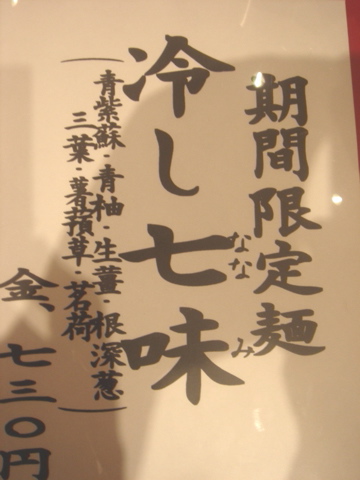 期間限定麺
冷し七味
なな み
(青紫蘇-青柚-生薑-根深葱
三葉-蕃椒草-茗荷)
金、七三〇円